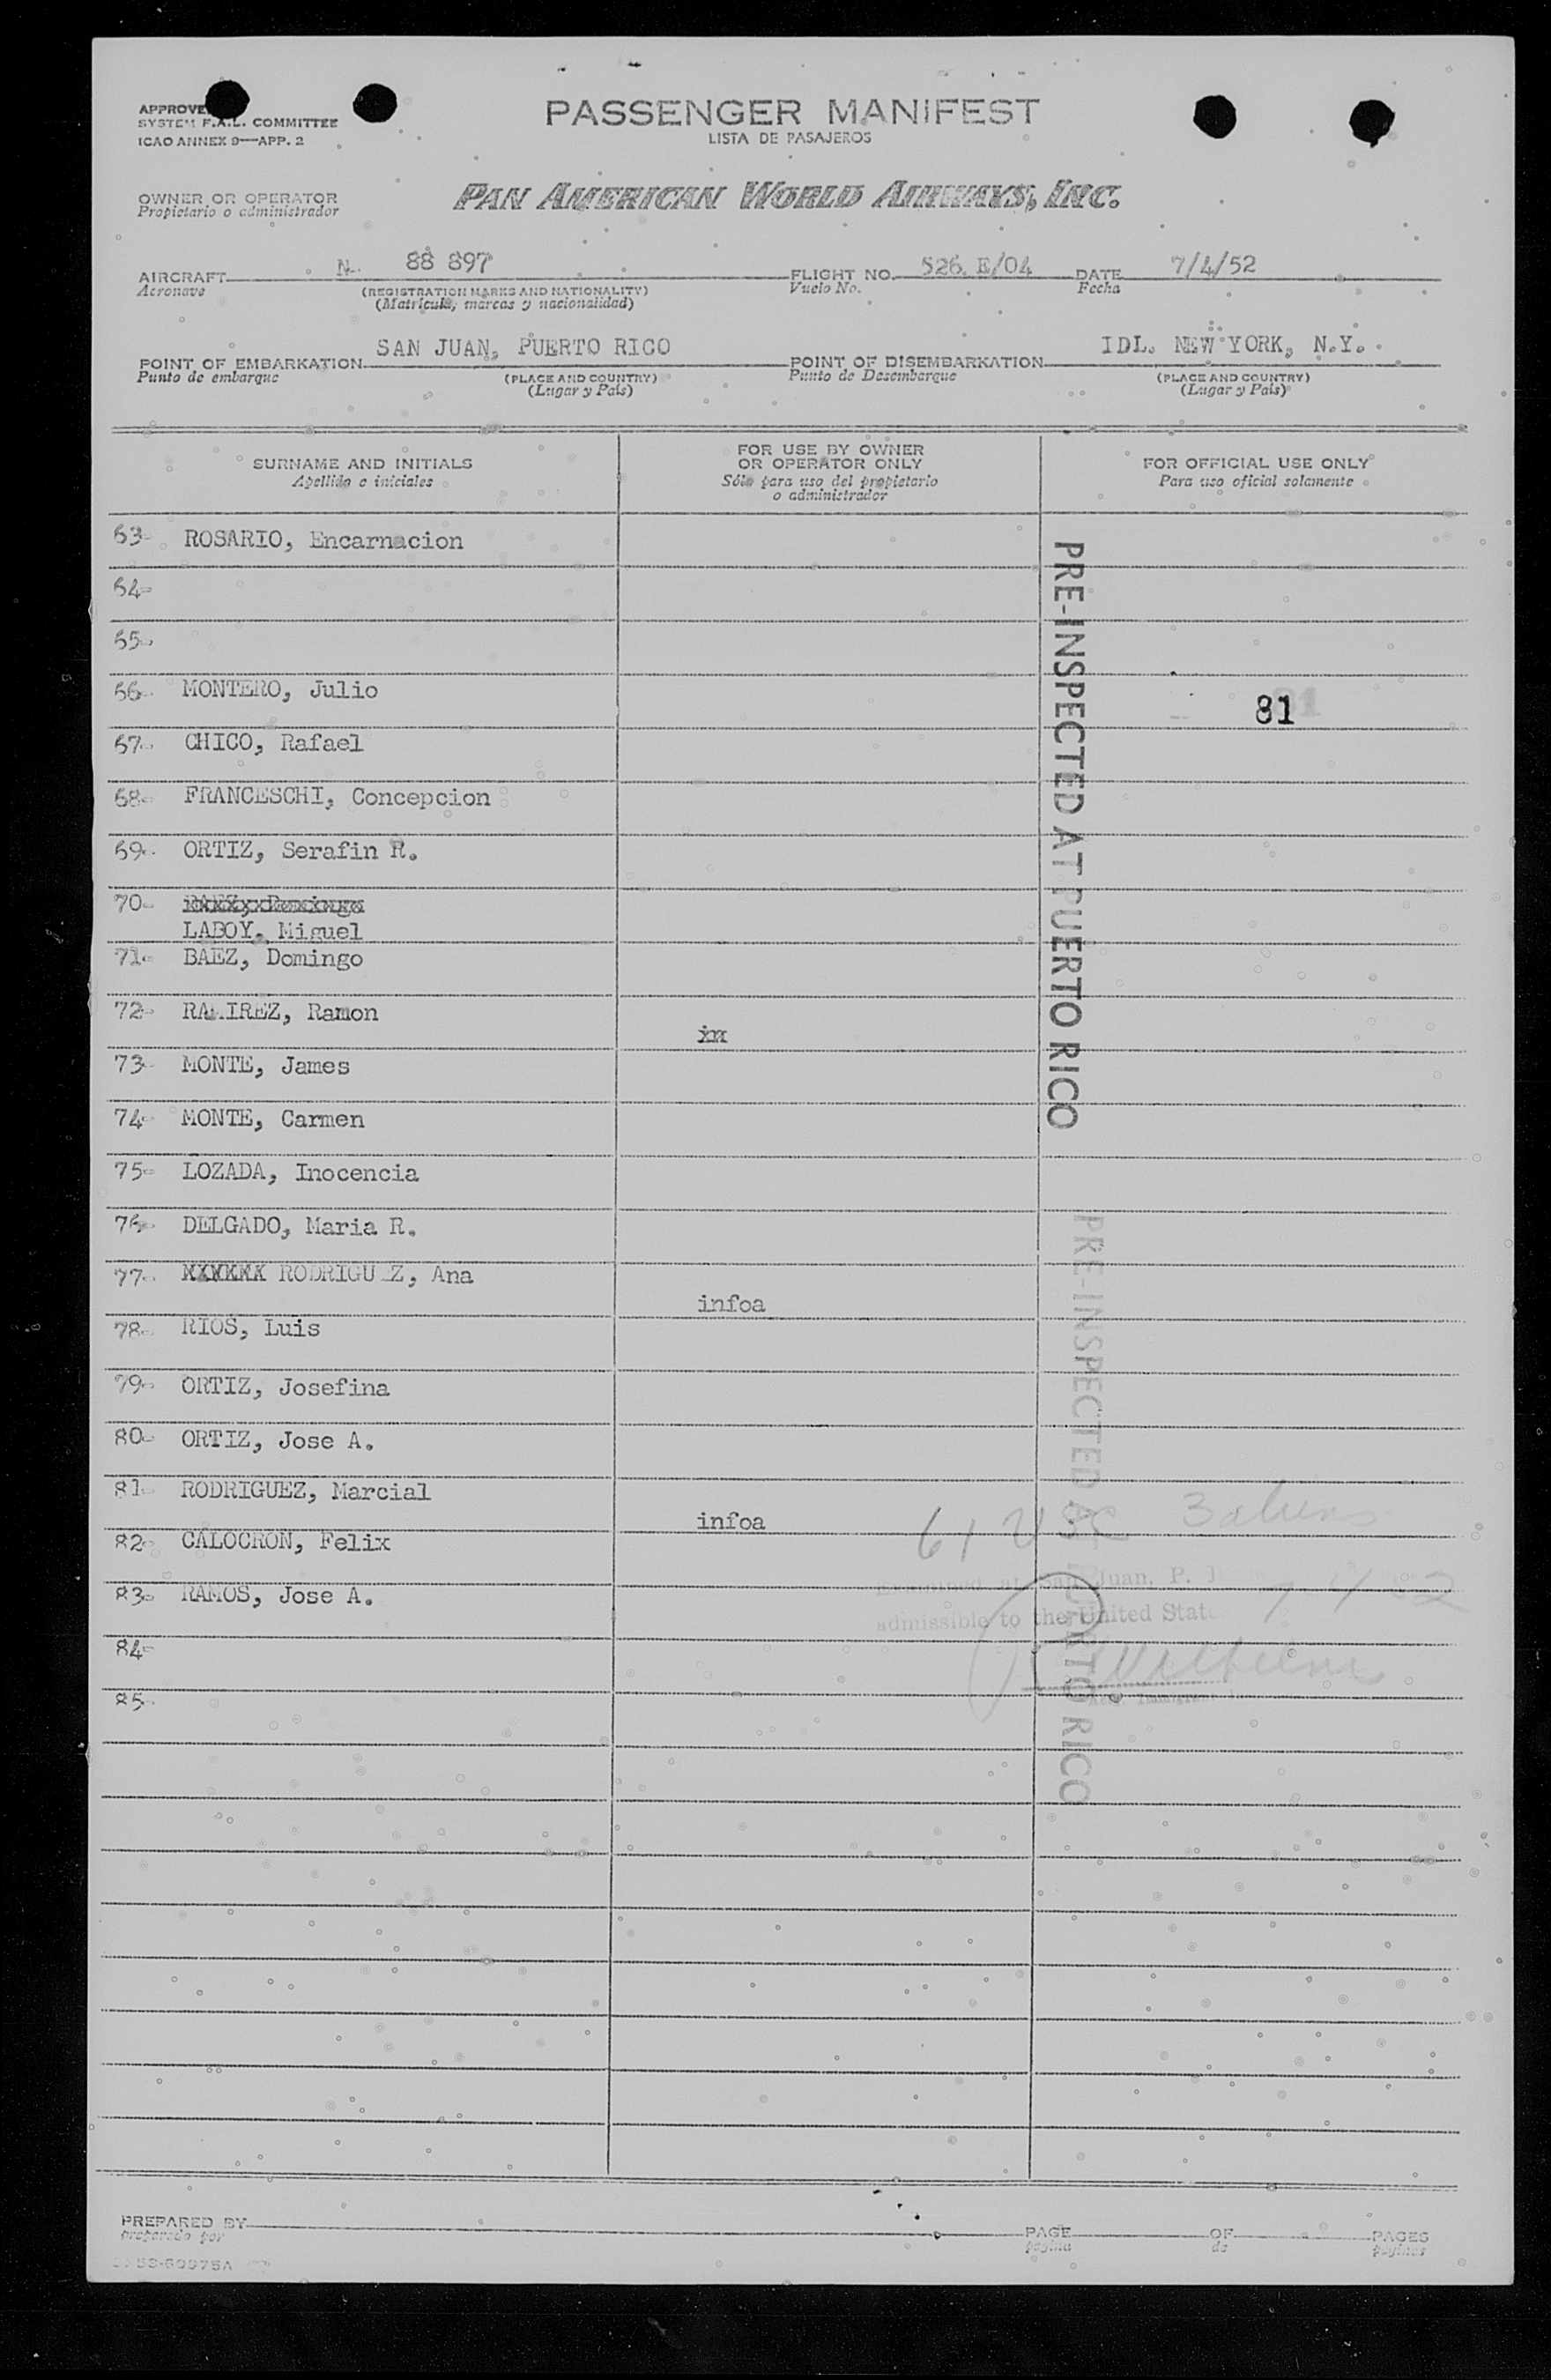 APPROVE
SYSTEM F.A.L. COMMITTEE
ICAO ANNEX 9—APP. 2
PASSENGER MANIFEST
LISTA DE PASAJEROS
OWNER OR OPERATOR
Propietario o administrador
PAN AMERICAN WORLD AIRWAYS, INC.
AIRCRAFT N. 88 897 FLIGHT NO. 526 E/04 DATE 7/4/52
Aeronave (REGISTRATION MARKS AND NATIONALITY) Vuelo No. Fecha
(Matrícula, marcas y nacionalidad)
POINT OF EMBARKATION SAN JUAN, PUERTO RICO POINT OF DISEMBARKATION IDL. NEW YORK, N.Y.
Punto de embarque (PLACE AND COUNTRY) Punto de Desembarque (PLACE AND COUNTRY)
(Lugar y País) (Lugar y País)
SURNAME AND INITIALS
Apellido e iniciales
FOR USE BY OWNER
OR OPERATOR ONLY
Sólo para uso del propietario
o administrador
FOR OFFICIAL USE ONLY
Para uso oficial solamente
63- ROSARIO, Encarnacion
64-
65-
66- MONTERO, Julio
81
67- CHICO, Rafael
68- FRANCESCHI, Concepcion
69- ORTIZ, Serafin R.
70- BAEZ, Domingo
LABOY, Miguel
71- BAEZ, Domingo
72- RAMIREZ, Ramon
in
73- MONTE, James
74- MONTE, Carmen
75- LOZADA, Inocencia
76- DELGADO, Maria R.
77- RODRIGUEZ, Ana
infoa
78- RIOS, Luis
79- ORTIZ, Josefina
80- ORTIZ, Jose A.
81- RODRIGUEZ, Marcial
infoa
61 USC 3 aliens
82- CALOCRON, Felix
83- RAMOS, Jose A.
84-
85-
PRE-INSPECTED AT PUERTO RICO
PRE-INSPECTED AT PUERTO RICO
Examined at San Juan, P.
admissible to the United State
PREPARED BY PAGE OF PAGES
preparado por página de páginas